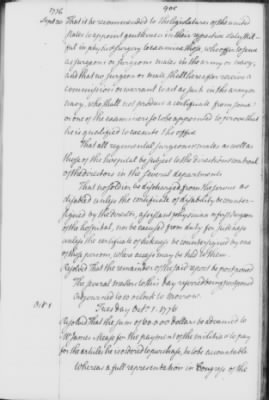 1776
905
Sept 30
That it be recommended to the legislatures of the united
states to appoint gentlemen in their respective states skill-
ful in physic & surgery to examine those, who offer to serve
as surgeons or surgeons mates in the army or navy,
and that no surgeon or mate shall hereafter receive a
commission or warrant to act as such in the army or
navy, who shall not produce a certificate from some
or one of the examiners so to be appointed to prove that
he is qualified to execute the office
That all regimental surgeons or mates as well as
those of the hospital be subject to the direction & controul
of the directors in the several departments
That no soldier be discharged from the service as
disabled unless the certificate of disability be counter-
signed by the director, assistant physician or first surgeon
of the hospital, nor be excused from duty for sickness
unless the certificate of sickness be countersigned by one
of those persons, when access may be had to them.
Resolved That the remainder of the said report be postponed
The several matters to this day referred being postponed
Adjourned to 10 o clock to morrow.
Tuesday Oct.r 1. 1776
Oct.r 1
Resolved That the sum of 100.000 dollars be advanced to
Mr James Mease for the payment of the militia & to pay
for the articles he is ordered to purchase, he to be accountable
Whereas a full representation in Congress of the